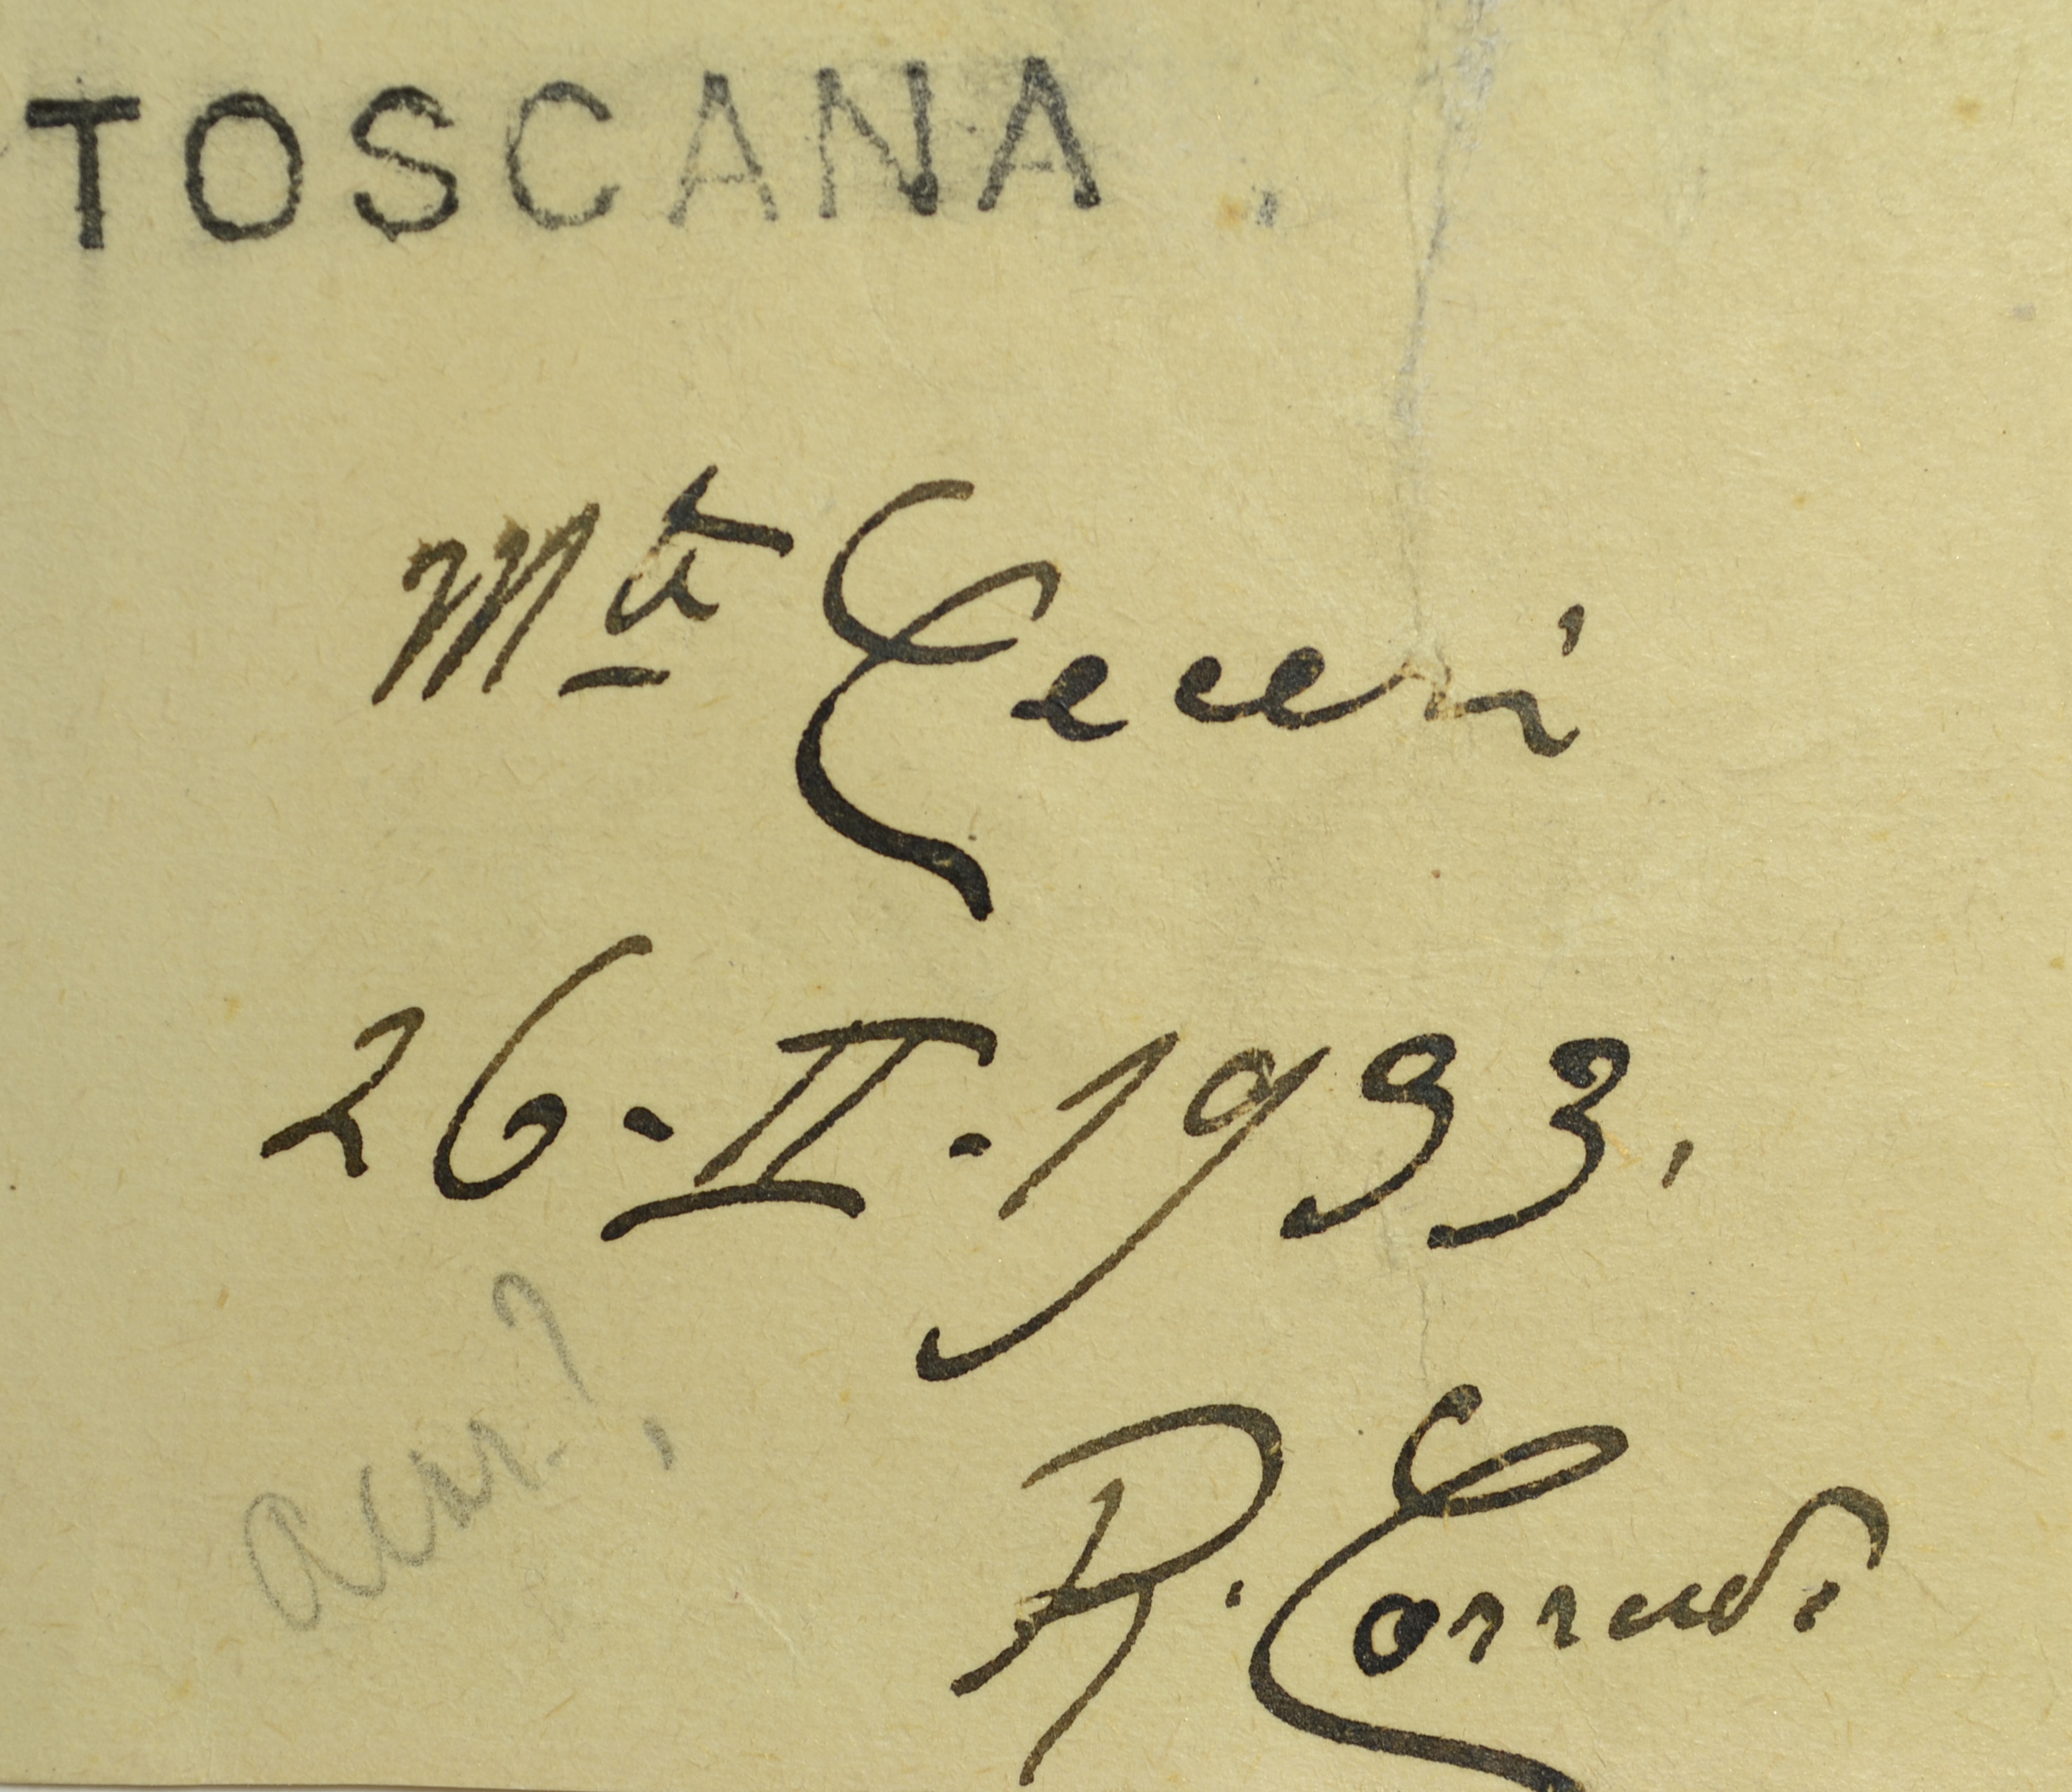 TOSCANA.
Mti Ceceri
26-II-1933.
acm?
R. Corradi